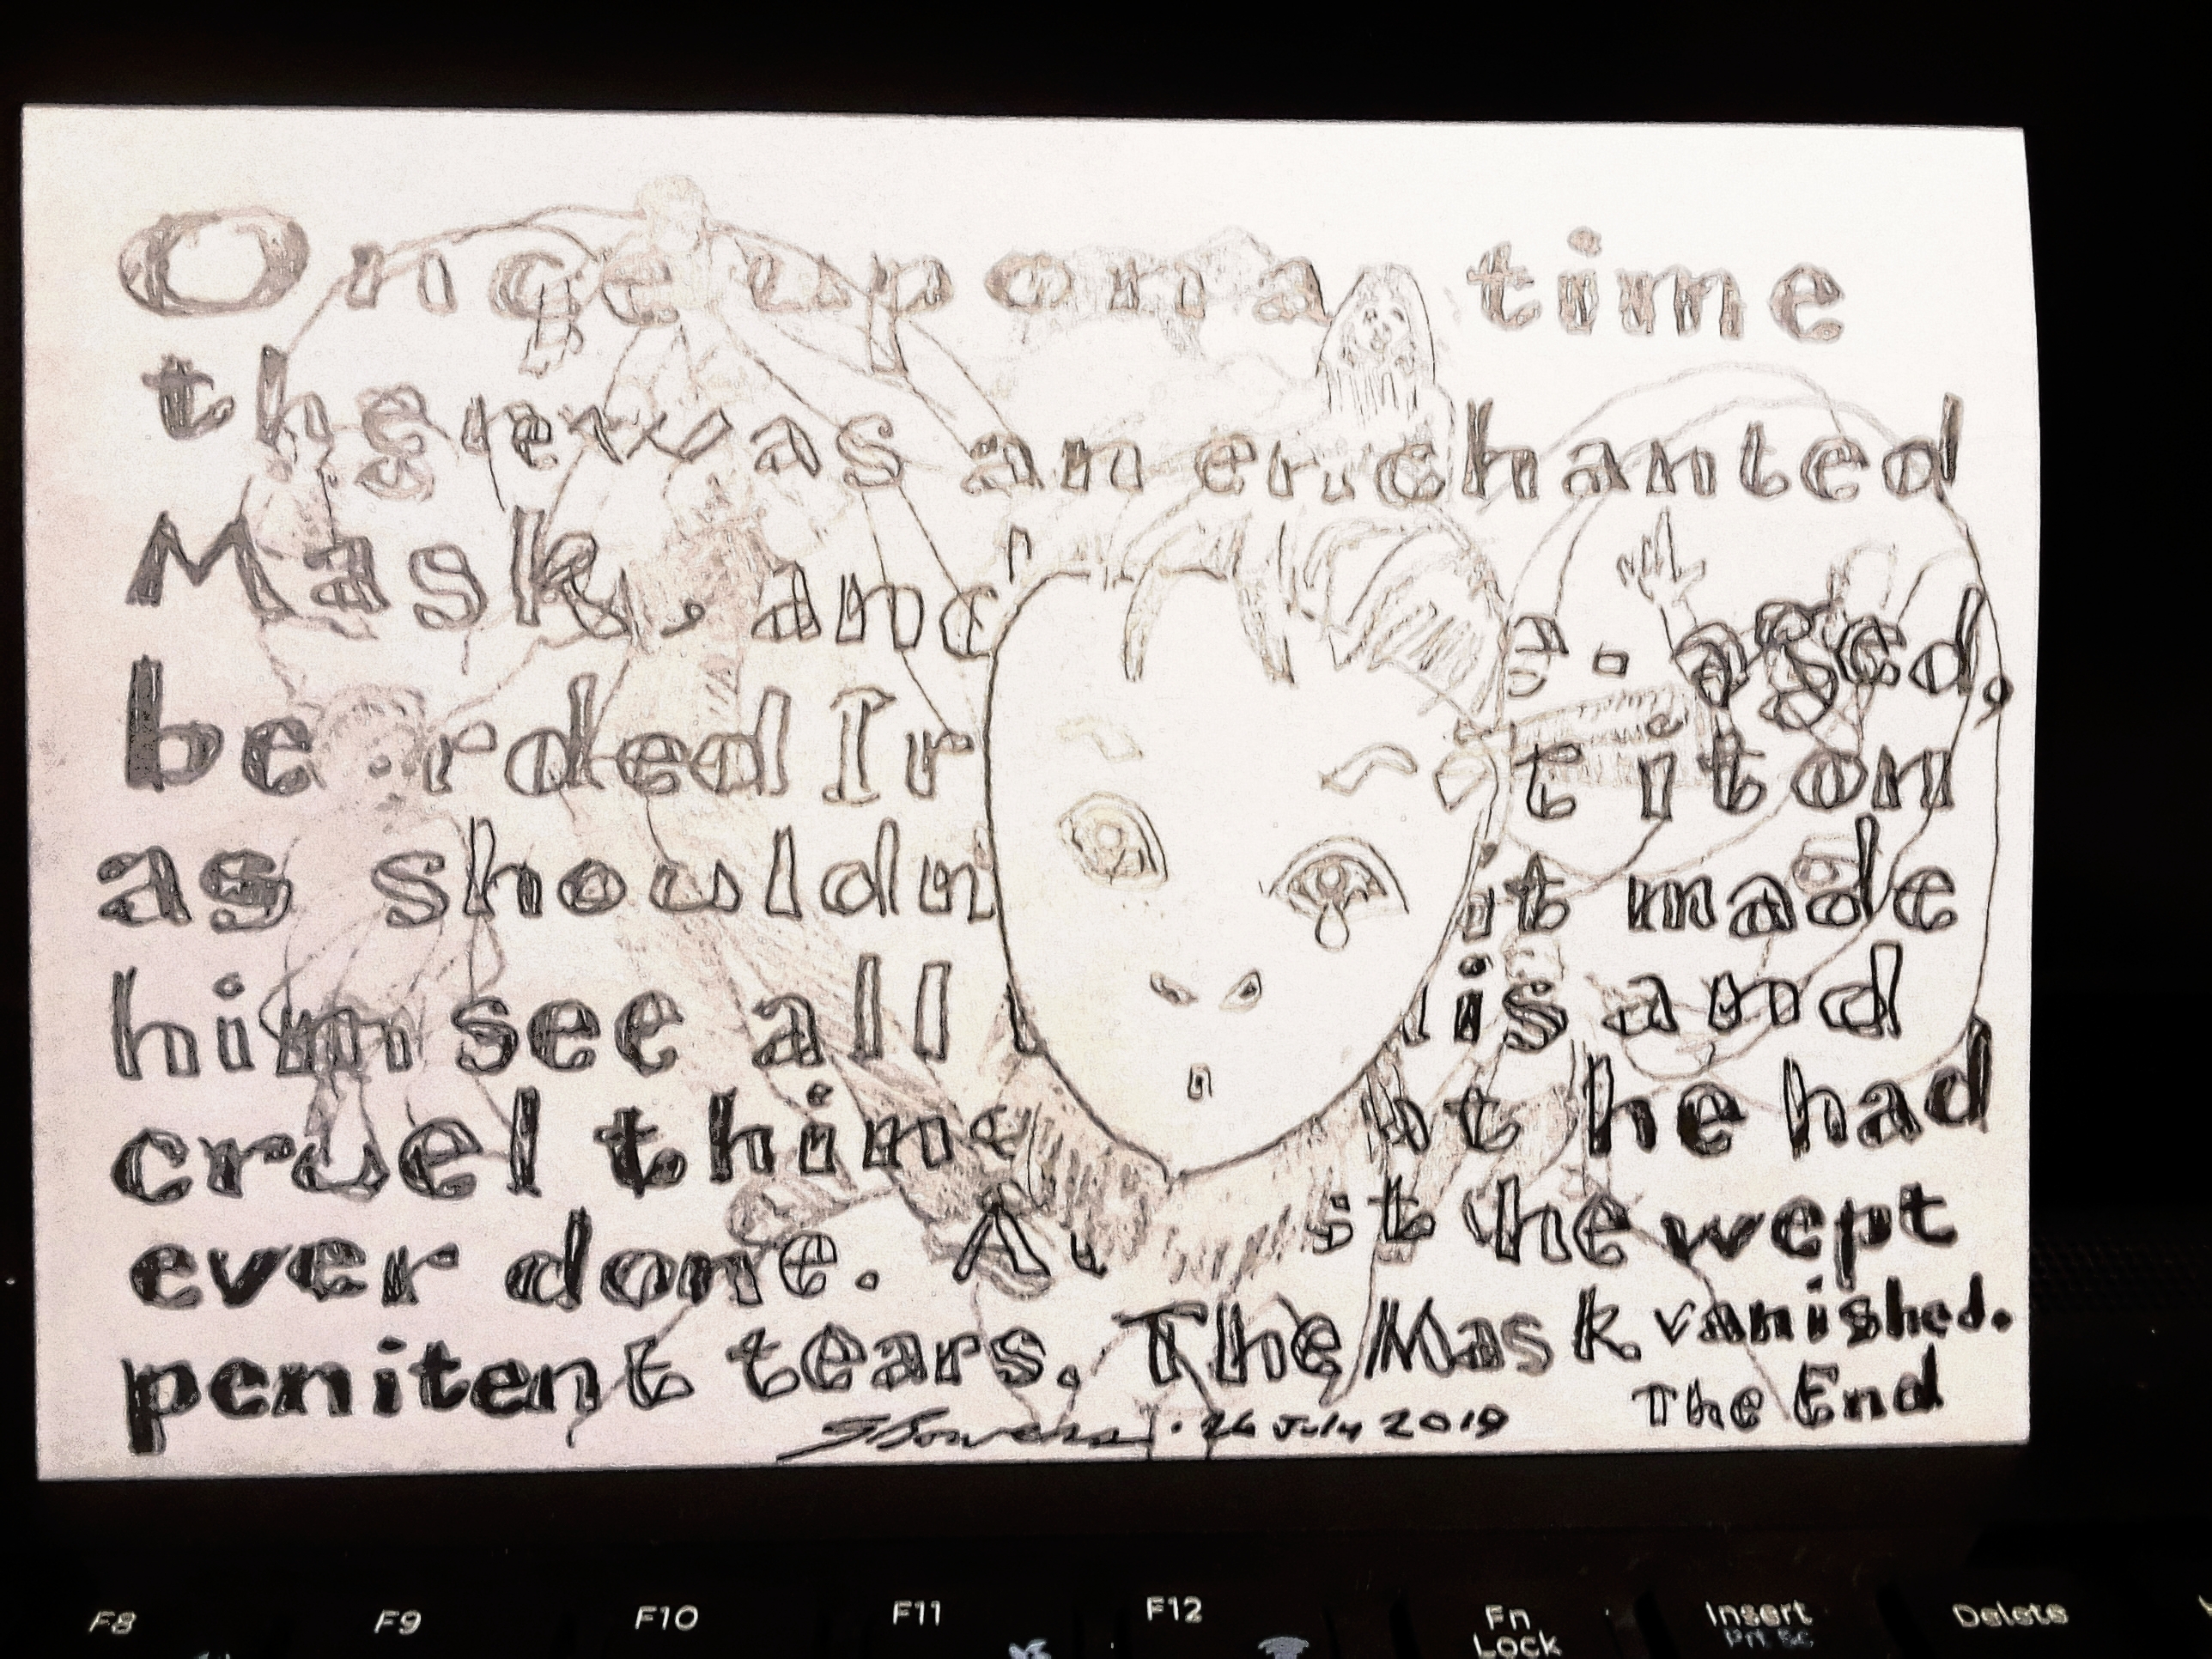 Once upon a time
there was an enchanted
Mask, and e. aged,
be rded Ir t it on
as shouldn it made
him see all is and
cruel thing ht he had
ever done. At st he wept
penitent tears. The Mask vanished.
The End
26 July 2019
F8 F9 F10 F11 F12 Fn Lock Insert Prt Sc Delete